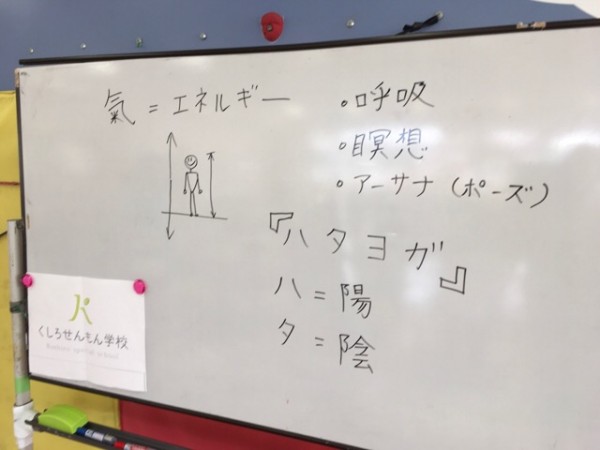 氣 = エネルギー
・呼吸
・瞑想
・アーサナ (ポーズ)
『ハタヨガ』
ハ = 陽
タ = 陰
くしろせんもん学校